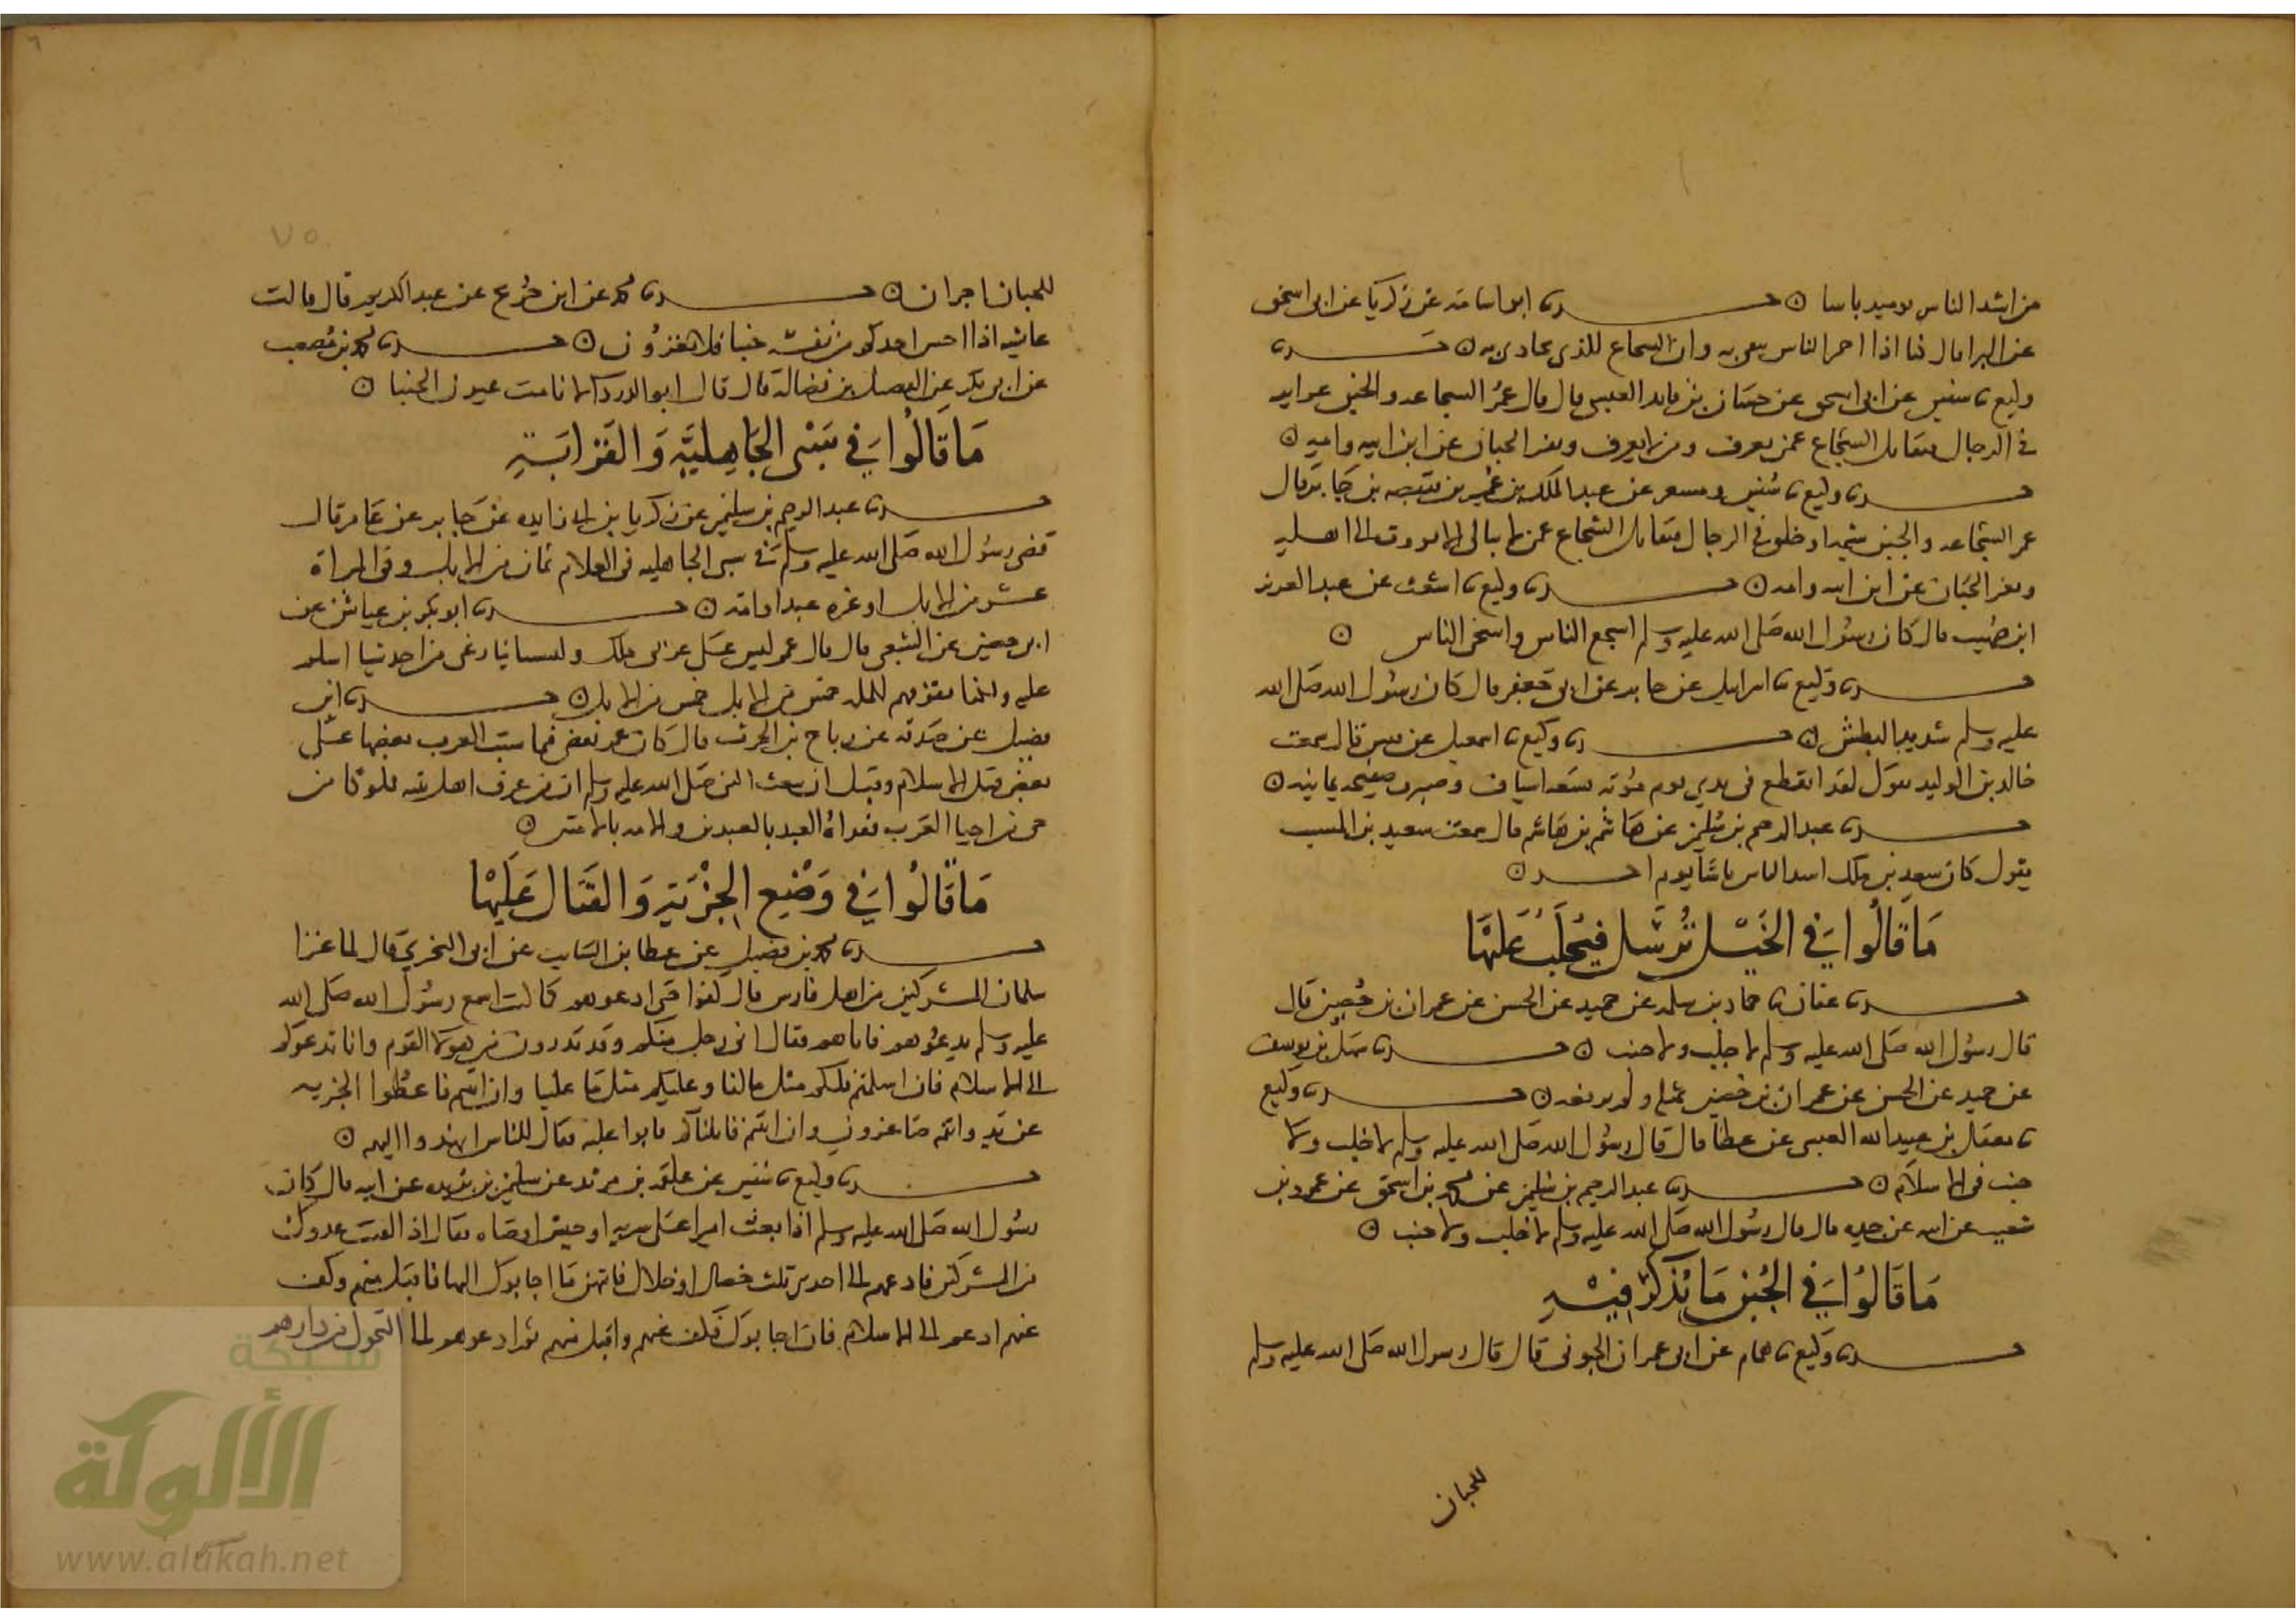 من اشد الناس يوميد باسا ⊙ حدثنا ابو اسامه عن زكريا عن ابى اسحق
عن البرا قال كنا اذا احمر الباس نتقى به وان الشجاع للذى يحاذى به ⊙ حدثنا
وكيع نا سفين عن ابى اسحق عن حسان بن فايد العبسى قال قال عمر الشجاعه والجبن غرايز
فى الرجال فيقاتل الشجاع عمن يعرف ومن لا يعرف ويفر الجبان عن ابن ابيه وامه ⊙
حدثنا وكيع نا سفين ومسعر عن عبد الملك بن عمير بن قبيصه بن جابر قال
عمر الشجاعه والجبن شيمه او خلق فى الرجال فيقاتل الشجاع عمن لا يبالى الا يووب الى اهله
ويفر الجبان عن ابن ابيه وامه ⊙ حدثنا وكيع نا اشعث عن عبد العزيز
ابن صهيب قال كان رسول الله صلى الله عليه وسلم اشجع الناس واسخى الناس ⊙
حدثنا وكيع نا اسرايل عن جابر عن ابى جعفر قال كان رسول الله صلى الله
عليه وسلم شديد البطش ⊙ حدثنا وكيع نا اسمعيل عن قيس قال سمعت
خالد بن الوليد يقول لقد انقطع فى يدي يوم موته تسعه اسياف وصبرت صفيحه يمانيه ⊙
حدثنا عبد الرحيم بن سليمن عن هاشم بن هاشم قال سمعت سعيد بن المسيب
يقول كان سعد بن ملك اشد الناس باسا يوم احد ⊙
ما قالوا في الخيل ترسل فيجلب عليها
حدثنا عفان نا حماد بن سلمه عن حميد عن الحسن عن عمران بن حصين قال
قال رسول الله صلى الله عليه وسلم لا جلب ولا جنب ⊙ حدثنا سهل بن يوسف
عن حميد عن الحسن عن عمران بن حصين بمثله ولم يرفعه ⊙ حدثنا وكيع
نا معقل بن عبيد الله العبسى عن عطا قال قال رسول الله صلى الله عليه وسلم لا جلب ولا
جنب فى الاسلام ⊙ حدثنا عبد الرحيم بن سليمن عن محمد بن اسحق عن عمرو بن
شعيب عن ابيه عن جده قال قال رسول الله صلى الله عليه وسلم لا جلب ولا جنب ⊙
ما قالوا في الجبن ما يذكر فيه
حدثنا وكيع نا همام عن ابى عمران الجونى قال قال رسول الله صلى الله عليه وسلم
للجبان
٦
٧٥
للجبان اجران ⊙ حدثنا محمد عن ابن جريج عن عبد الكريم قال قالت
عايشه اذا احس احدكم من نفسه جبنا فلا يغزون ⊙ حدثنا محمد بن مصعب
عن ابى بكر عن الفضيل بن فضالة قال قال ابو الدردا لا نامت عيون الجبنا ⊙
ما قالوا في سبى الجاهلية والقرابة
حدثنا عبد الرحيم بن سليمن عن زكريا بن ابى زايده عن جابر عن عامر قال
قضى رسول الله صلى الله عليه وسلم فى سبى الجاهليه فى الغلام ثمان من الابل وفى المراة
عشر من الابل او غره عبد او امة ⊙ حدثنا ابو بكر بن عياش عن
ابى حصين عن الشعبى قال قال عمر ليس على عربى ملك ولسنا نازعى من احد شيا اسلم
عليه ولكنا نقومهم المله خمس من الابل خمس من الابل ⊙ حدثنا ابن
فضيل عن صدقه عن رباح بن الحرث قال كان عمر يقضى فيما سبت العرب بعضها على
بعض قبل الاسلام وقبل ان يبعث النبى صلى الله عليه وسلم ان من عرف اهل بيته مملوكا من
حى من احيا العرب ففداه العبد بالعبدين والامه بالامتين ⊙
ما قالوا في وضع الجزية والقتال عليها
حدثنا محمد بن فضيل عن عطا بن السايب عن ابى البختري قال لما غزا
سلمان المشركين من اهل فارس قال كفوا حتى ادعوهم كما كنت اسمع رسول الله صلى الله
عليه وسلم يدعوهم فاتاهم فقال انى رجل منكم وقد تدرون منزلتى من هولا القوم وانا ندعوكم
الى الاسلام فان اسلمتم فلكم مثل ما لنا وعليكم مثل ما علينا وان ابيتم فاعطوا الجزيه
عن يد وانتم صاغرون وان ابيتم قاتلناكم فابوا عليه فقال للناس انهدوا اليهم ⊙
حدثنا وكيع نا سفين عن علقمه بن مرثد عن سليمن بن بريده عن ابيه قال كان
رسول الله صلى الله عليه وسلم اذا بعث اميرا على سريه او جيش اوصاه فقال اذا لقيت عدوك
من المشركين فادعهم الى احدى ثلث خصال او خلال فايتهن ما اجابوك اليها فاقبل منهم وكف
عنهم ادعهم الى الاسلام فان اجابوك فكف عنهم واقبل منهم ثم ادعوهم الى التحول من دارهم
شبكة
الألوكة
www.alukah.net